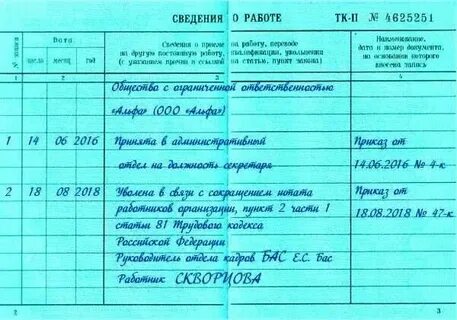 СВЕДЕНИЯ О РАБОТЕ ТК-II № 4625251
№ записи
Дата
число месяц год
Сведения о приеме на работу, переводе
на другую постоянную работу, квалификации, увольнении
(с указанием причин и ссылкой на статью, пункт закона)
Наименование,
дата и номер документа,
на основании которого
внесена запись
1 2 3 4
Общество с ограниченной ответственностью
«Альфа» (ООО «Альфа»)
1 14 06 2016 Принята в административный
отдел на должность секретаря
Приказ от
14.06.2016 № 4-к
2 18 08 2018 Уволена в связи с сокращением штата
работников организации, пункт 2 части 1
статьи 81 Трудового кодекса
Российской Федерации
Приказ от
18.08.2018 № 47-к
Руководитель отдела кадров БАС Е.С. Бас
Работник СКВОРЦОВА
2 3